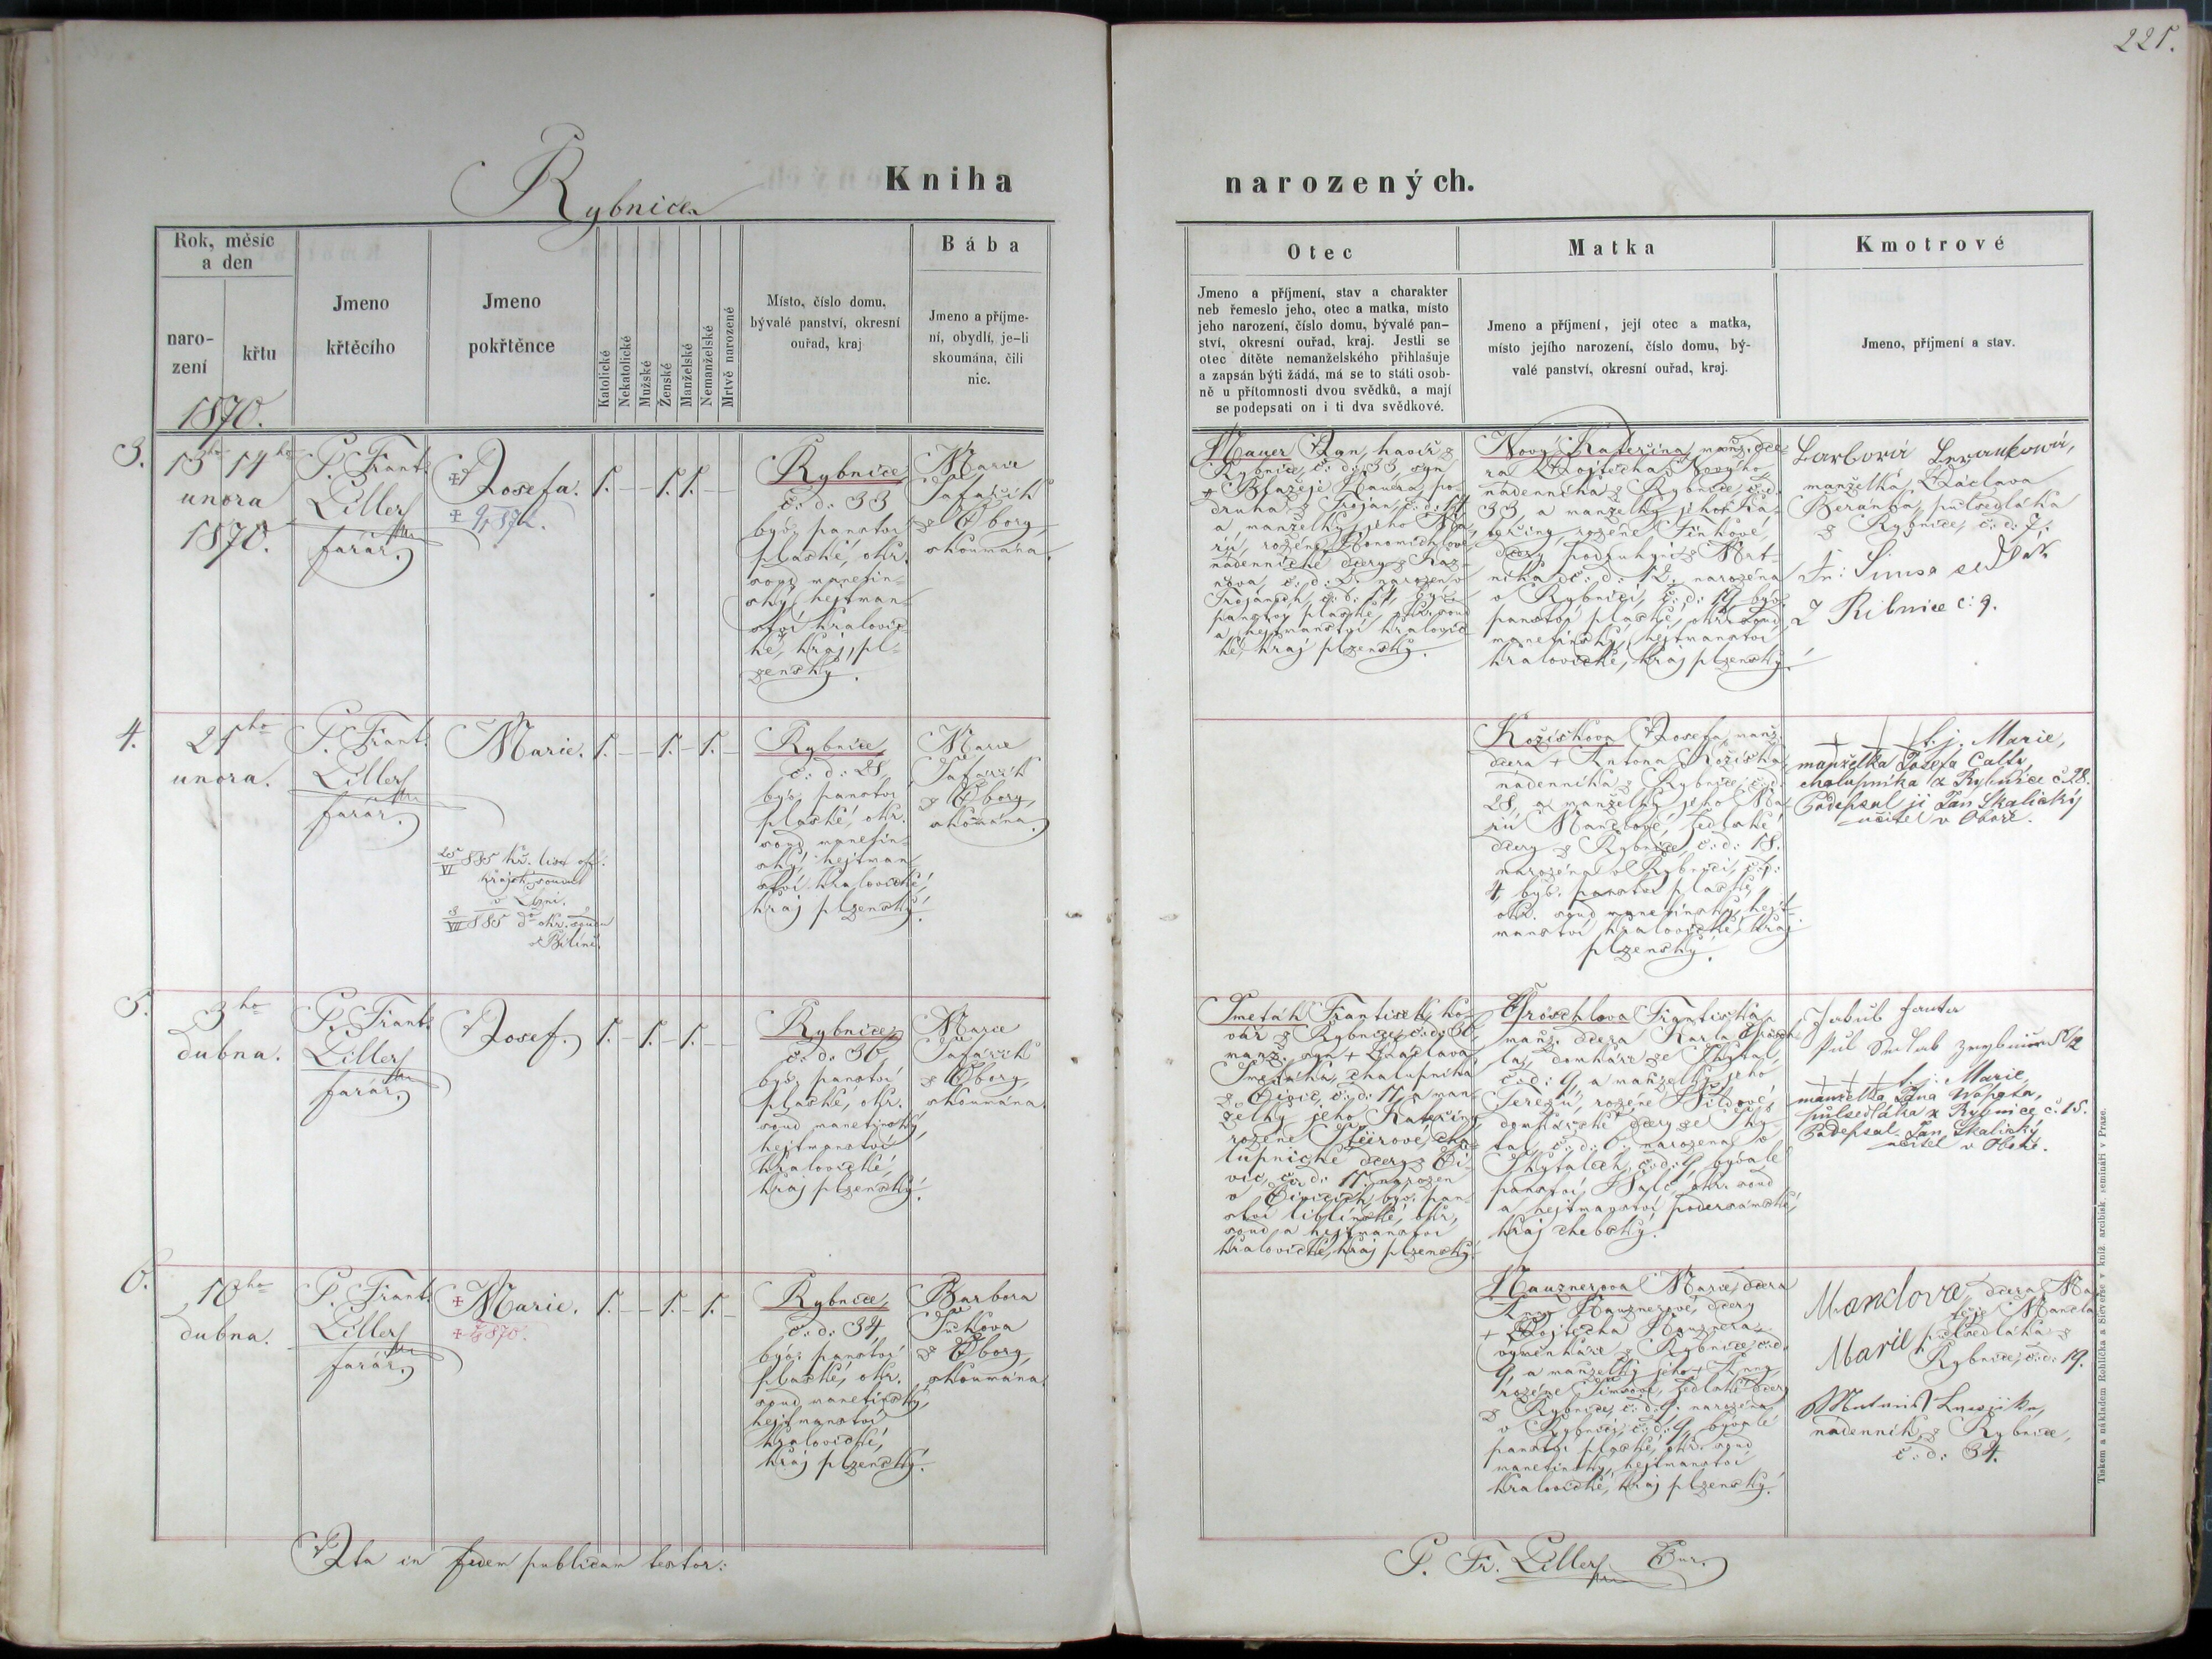 221.
Rybnice
Kniha
narozených.
Rok, měsíc
a den
naro-
zení
křtu
1870.
Jmeno
křtěcího
Jmeno
pokřtěnce
Katolické
Nekatolické
Mužské
Ženské
Manželské
Nemanželské
Mrtvě narozené
Místo, číslo domu,
bývalé panství, okresní
ouřad, kraj
Bába
Jmeno a příjme-
ní, obydlí, je-li
skoumána, čili
nic.
Otec
Jmeno a příjmení, stav a charakter
neb řemeslo jeho, otec a matka, místo
jeho narození, číslo domu, bývalé pan-
ství, okresní ouřad, kraj. Jestli se
otec dítěte nemanželského přihlašuje
a zapsán býti žádá, má se to státi osob-
ně u přítomnosti dvou svědků, a mají
se podepsati on i ti dva svědkové.
Matka
Jmeno a příjmení, její otec a matka,
místo jejího narození, číslo domu, bý-
valé panství, okresní ouřad, kraj.
Kmotrové
Jmeno, příjmení a stav.
3.
13ho 14ho
unora
1870.
P. Frant.
Liller
farář.
Josefa.
1. — — 1. 1. — —
Rybnice
č: d: 33
býv. panství
plaské, okr.
soud manetín-
ský, hejtman-
ství kralovic-
ké, kraj pl-
zenský.
Marie
Tafařík
z Obory,
skoumána.
Mauer Jan, havíř z
Rybnice, č: d: 33, syn
+ Blažeje Mauera, po-
druha z Trojan, č: d: 14
a manželky jeho Ma-
rie, rozené
nádennické dcery z Kaz-
nova, č: d: 2. narozen v
Trojanech, č: d: 14, býv.
panství plaské, okr. soud
a hejtmanství kralovic-
ké, kraj plzenský.
Nový Kateřina, manž. dce-
ra + Vojtěcha Nového
nádenníka z Rybnice, č: d:
33, a manželky jeho Ka-
teřiny, rozené Finkové,
dcery podruhyně z Mrt-
níka č: d: 12. narozena
v Rybnici, č: d: 19, býv.
panství plaské, okr. soud
manetínský, hejtmanství
kralovické, kraj plzenský.
Barbora Beránková,
manželka Václava
Beránka, půlsedláka
z Rybnice, č: d: 7.
Fr: Simsa sedlák
z Ribnice č: 9.
4.
21ho
unora.
P. Frant.
Liller
farář.
Marie.
1. — — 1. — 1. —
25/VI 885 kř. list of.
krajsk. soudu
v Plzni.
8/VII 885 do okr. soudu
v Bilině.
Rybnice
č: d: 28
býv. panství
plaské, okr.
soud manetín-
ský, hejtman-
ství kralovické,
kraj plzenský.
Marie
Tafařík
z Obory,
skoumána.
Kožíšková Josefa, manž.
dcera + Antona Kožíška
nádenníka z Rybnice, č: d:
28, a manželky jeho Ma-
rie Mandlové, sedlské
dcery z Rybnice, č: d: 18.
narozena v Rybnici, č: d:
4, býv. panství plaské,
okr. soud manetínský, hejt-
manství kralovické, kraj
plzenský.
+ + + t. j. Marie,
manželka Josefa Calty,
chalupníka z Rybnice č. 28.
Podepsal ji Jan Skalický
učitel v Oboře.
5.
3ho
dubna.
P. Frant.
Liller
farář.
Josef.
1. — 1. — 1. — —
Rybnice
č: d: 36,
býv. panství
plaské, okr.
soud manetínský,
hejtmanství
kralovické,
kraj plzenský.
Marie
Tafařík
z Obory,
skoumána.
Smeták František, ko-
vář z Rybnice, č: d: 36,
manž. syn + Václava
Smetáka, chalupníka
z č: d: 17, a man-
želky jeho Kateřiny
rozené cha-
lupnické dcery z
č: d: 17. narozen
v býv. pan-
ství liblínské, okr.
soud a hejtmanství
kralovické, kraj plzenský.
Gröschlova Františka,
manž. dcera Karla Grösch-
la, domkáře ze
č: d: 9, a manželky jeho
Terezie, rozené
domkářské dcery ze
č: d: 6. narozena v
č: d: 9, bývalé
panství okr. soud
a hejtmanství podersamské,
kraj chebský.
Jakub Janta
půl Sedlak z Rybnice
+ + + t. j. Marie,
manželka Jana Wopata,
půlsedláka z Rybnice č. 15.
Podepsal Jan Skalický
učitel v Oboře.
6.
10ho
dubna.
P. Frant.
Liller
farář.
Marie.
1. — — 1. — 1. —
Rybnice
č: d: 34,
býv. panství
plaské, okr.
soud manetínský,
hejtmanství
kralovické,
kraj plzenský.
Barbora
Suková
z Obory,
skoumána.
Hauznerova Marie, dcera
Anny Hauznerové, dcery
+ Vojtěcha Hauznera
výmenkáře z Rybnice, č: d:
9, a manželky jeho + Anny
rozené Šimsové, sedlské dcery
z Rybnice, č: d: 9. narozena
v Rybnici, č: d: 9, bývalé
panství plaské, okr. soud
manetínský, hejtmanství
kralovické, kraj plzenský.
Mandlova, dcera Ma-
těje Mandla
Marie půlsedláka z
Rybnice, č: d: 19.
nádenník z Rybnice,
č: d: 34.
Ita in fidem publicam testor:
P. Fr. Liller Cur.
Tiskem a nákladem Rohlíčka a Sieverse v kníž. arcibisk. semináři v Praze.